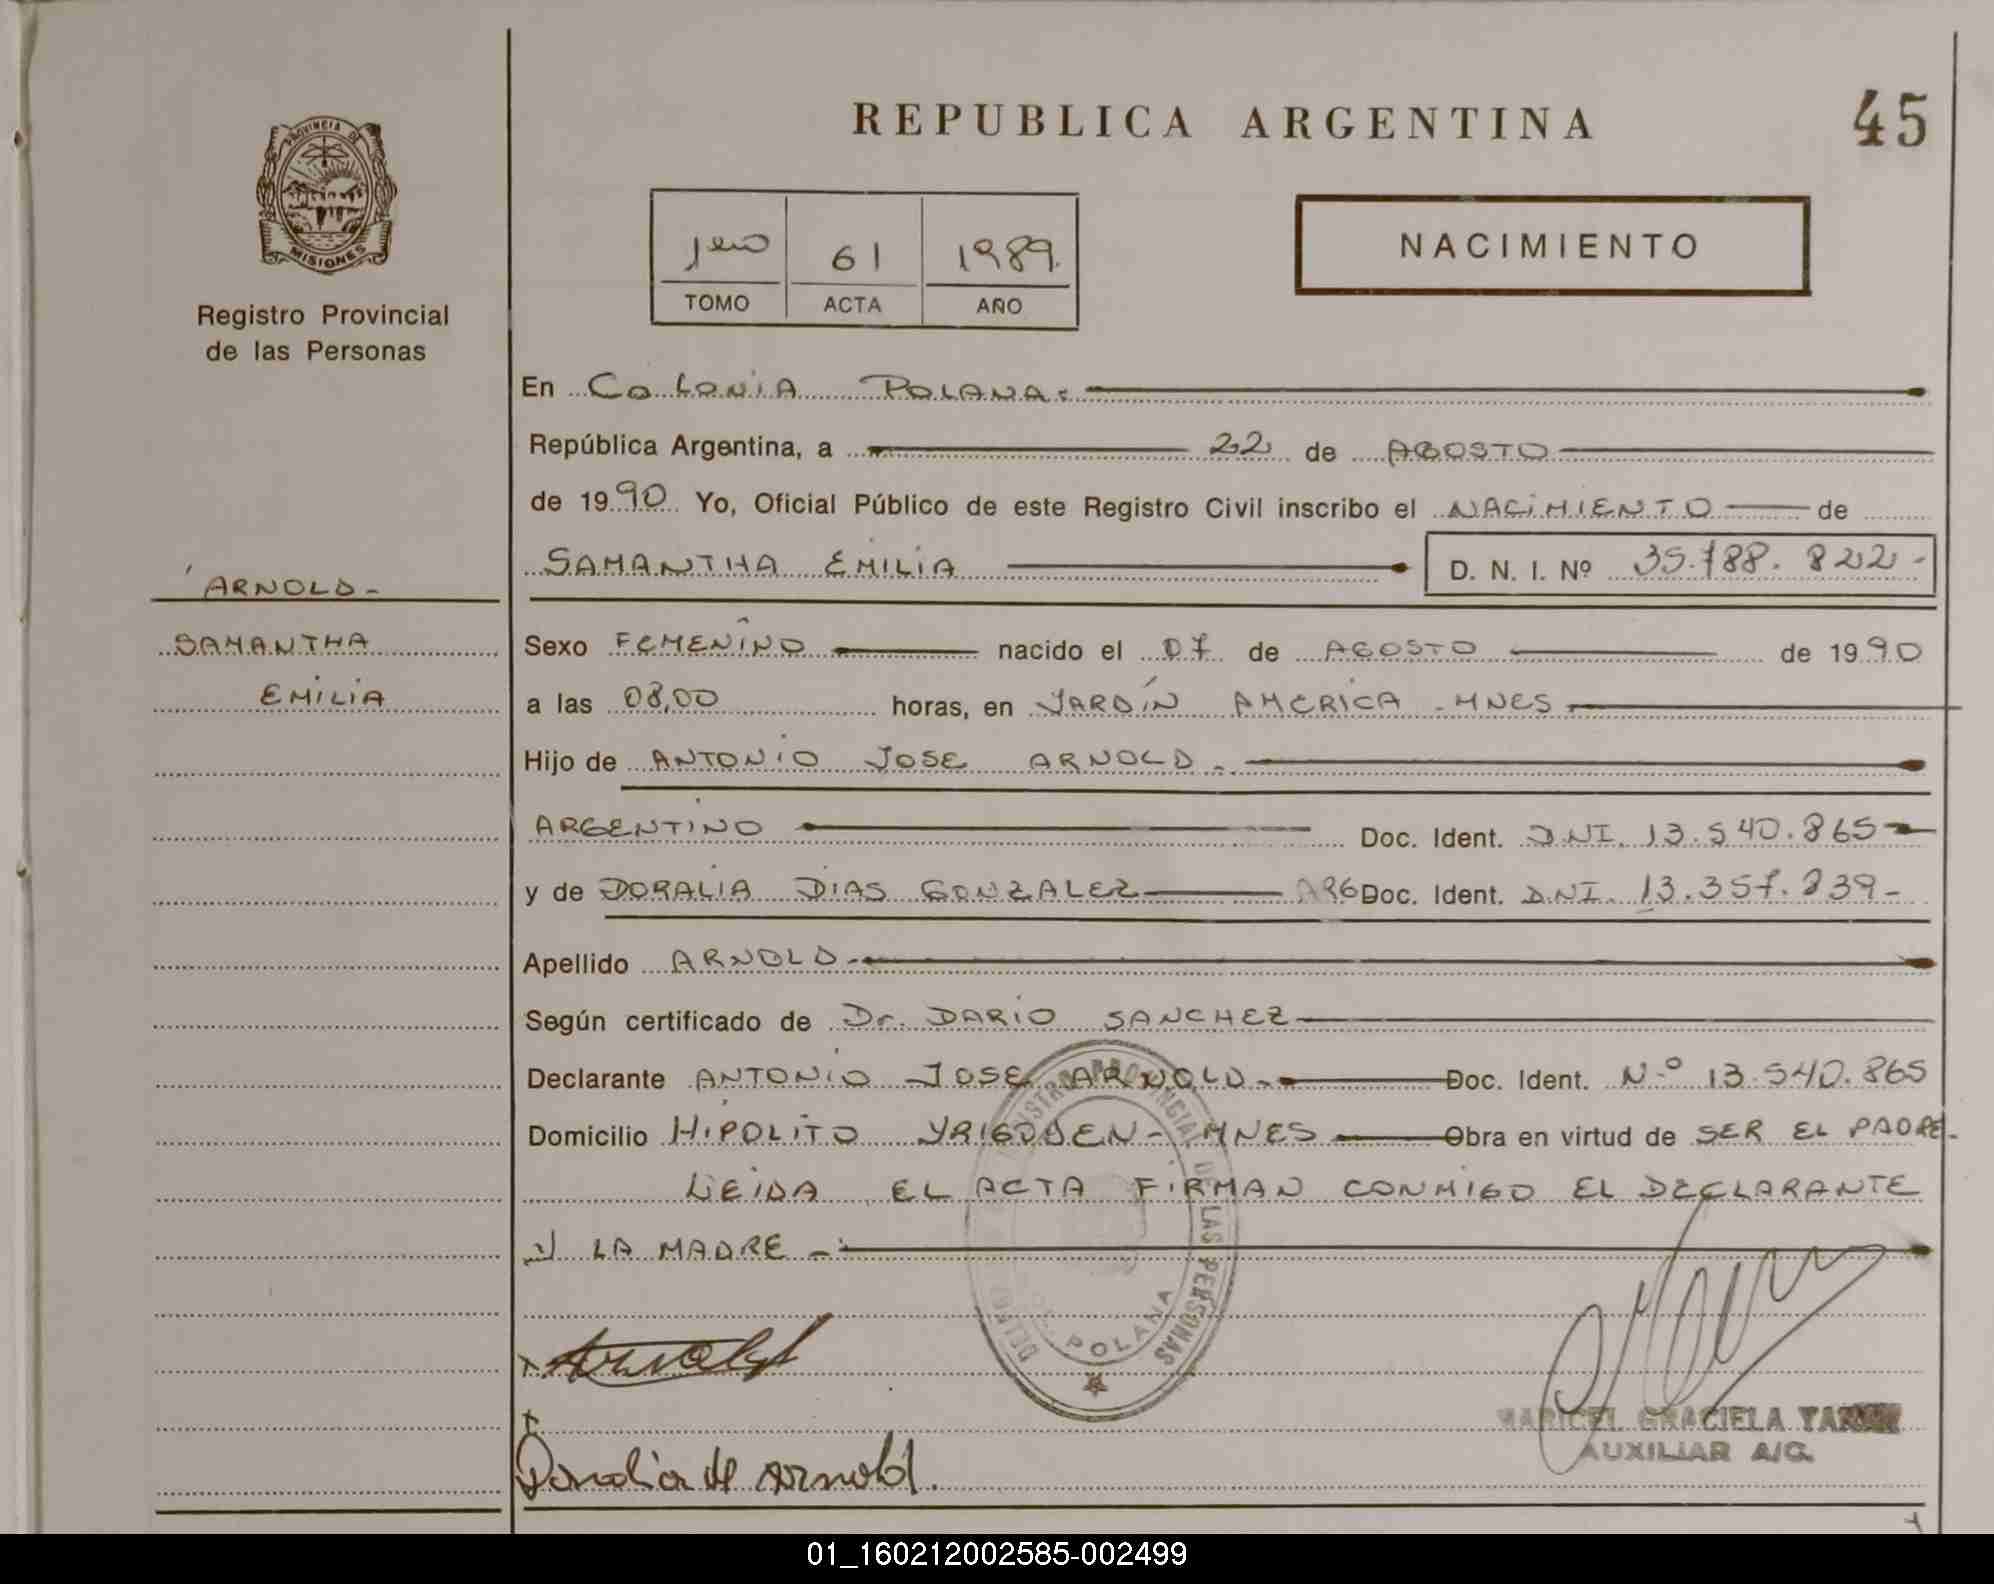 REPUBLICA ARGENTINA
45
PROVINCIA DE
MISIONES
Registro Provincial
de las Personas
1ero 61 1989.
TOMO ACTA AÑO
NACIMIENTO
En COLONIA POLANA.
República Argentina, a 22 de AGOSTO
de 1990 Yo, Oficial Público de este Registro Civil inscribo el NACIMIENTO de
SAMANTHA EMILIA D. N. I. Nº 35.788.822-
ARNOLD-
SAMANTHA
EMILIA
Sexo FEMENINO nacido el 07 de AGOSTO de 1990
a las 08,00 horas, en JARDÍN AMERICA - MNES
Hijo de ANTONIO JOSE ARNOLD.
ARGENTINO Doc. Ident. DNI. 13.540.865
y de DORALIA DIAS GONZALEZ ARG Doc. Ident. DNI. 13.357.839-
Apellido ARNOLD.
Según certificado de Dr. DARIO SANCHEZ
Declarante ANTONIO JOSE ARNOLD. Doc. Ident. N.º 13.540.865
Domicilio HIPOLITO YRIGOYEN - MNES Obra en virtud de SER EL PADRE-
LEIDA EL ACTA FIRMAN CONMIGO EL DECLARANTE
Y LA MADRE -
PROVINCIAL DE LAS PERSONAS
POLANA
Arnold
Doralia de Arnold.
MARICEL GRACIELA
AUXILIAR A/C.
01_160212002585-002499